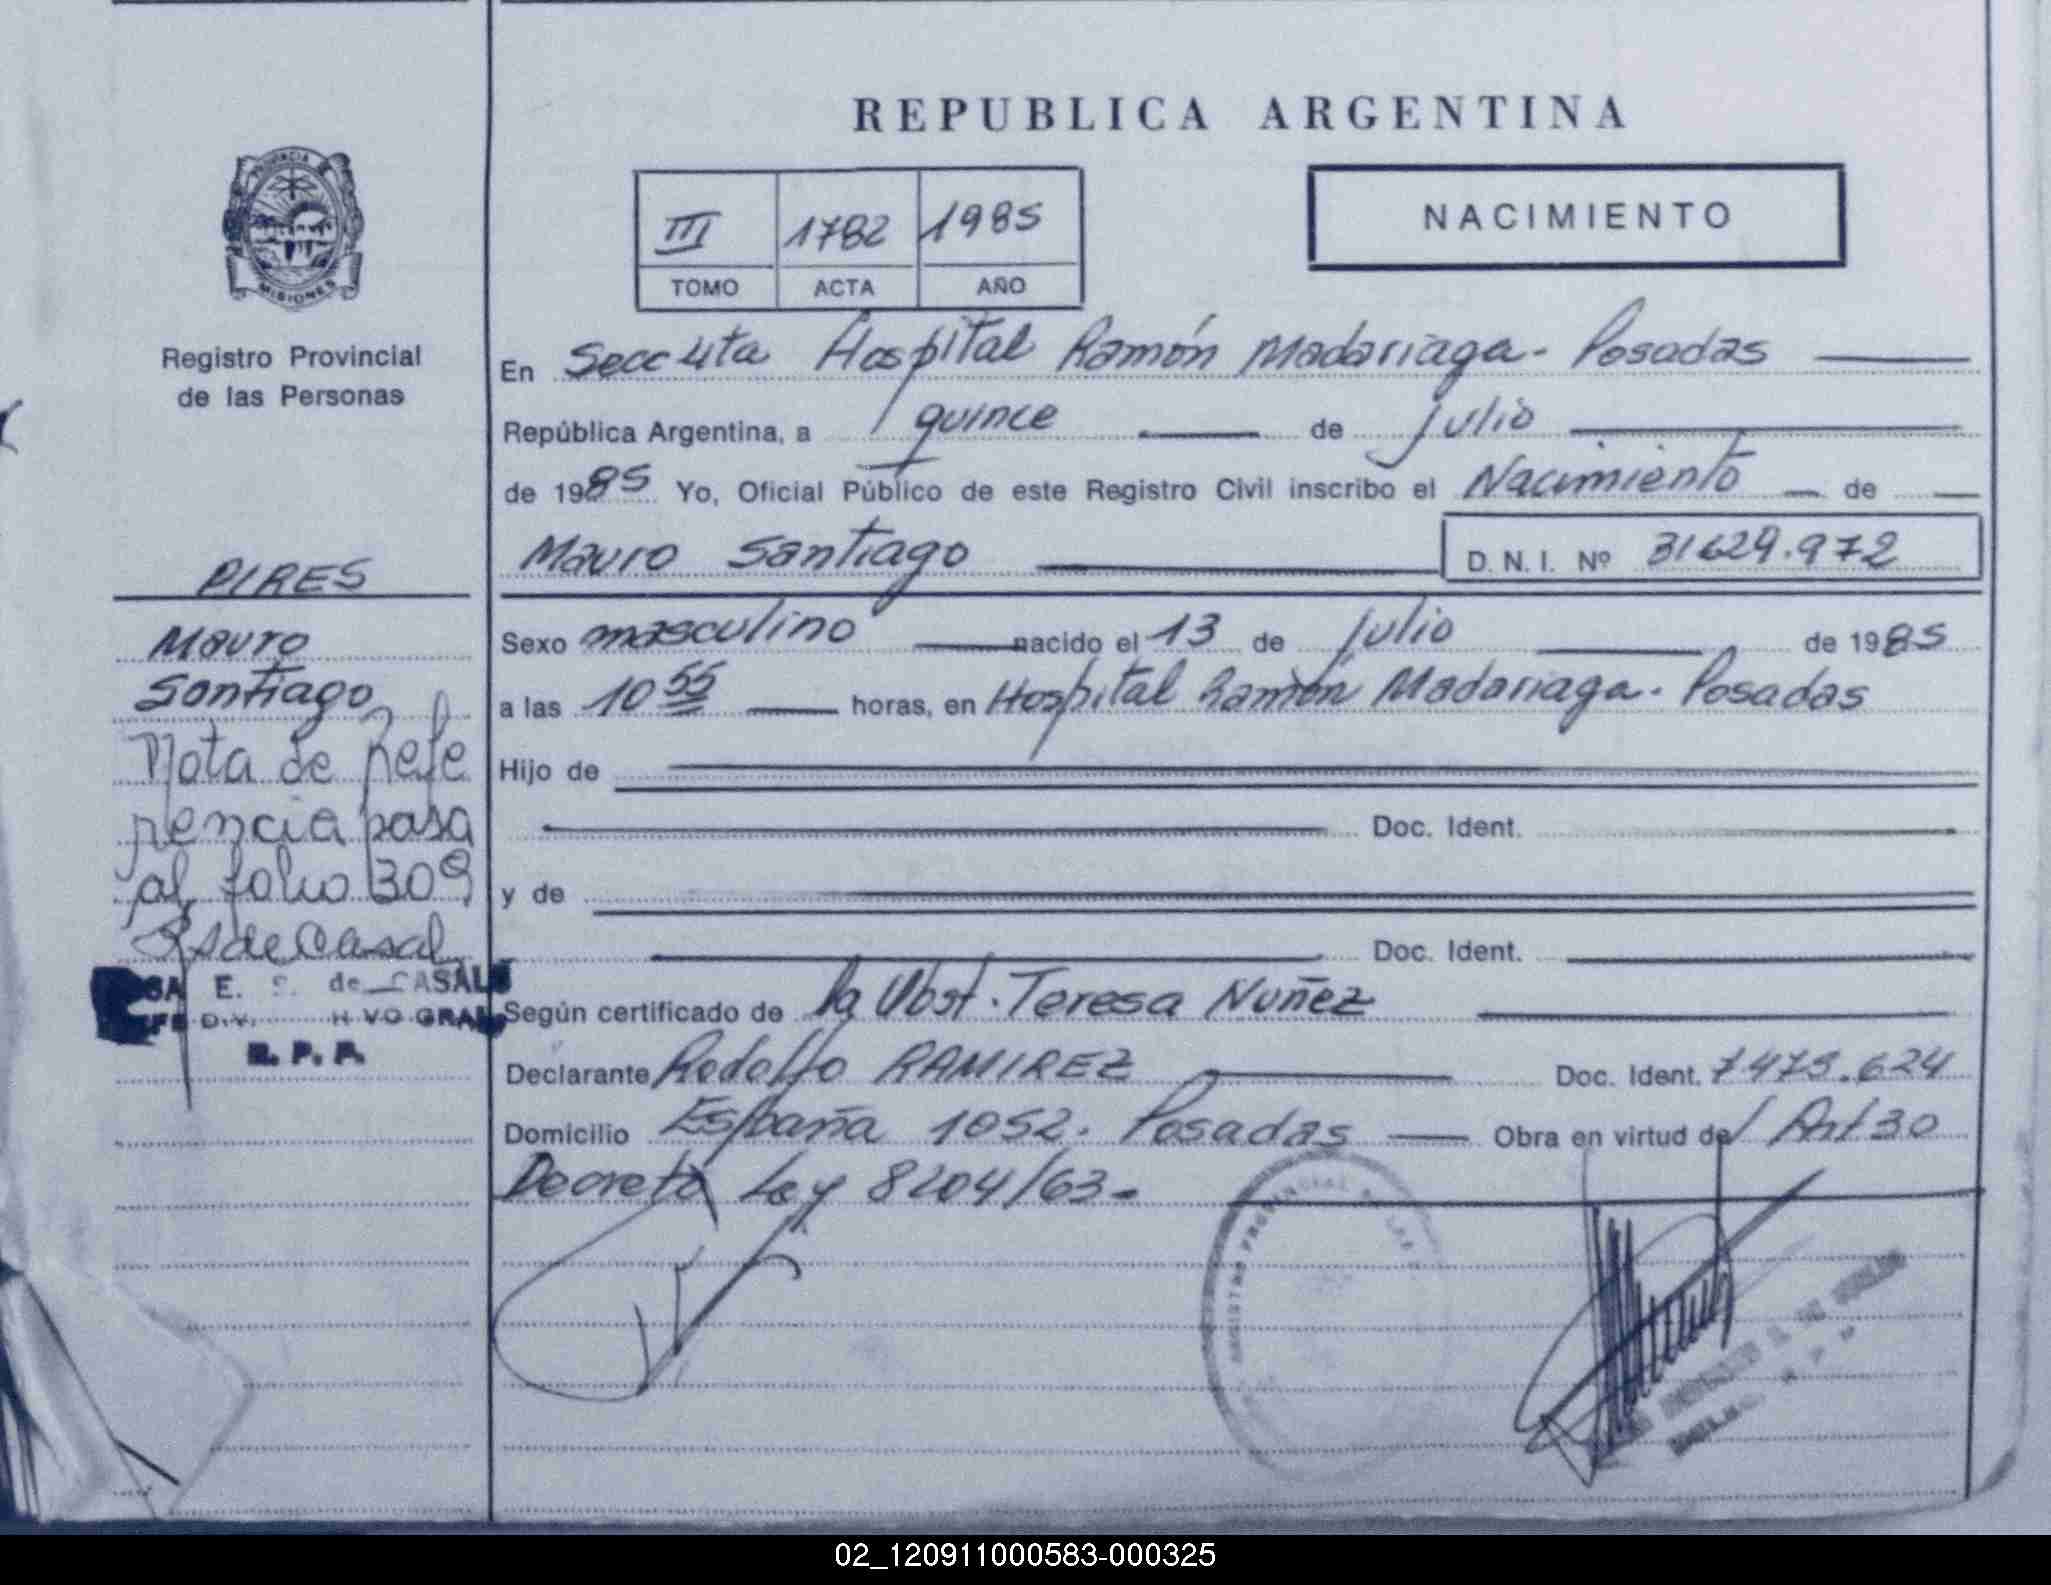 REPUBLICA ARGENTINA
PROVINCIA DE
MISIONES
Registro Provincial
de las Personas
III 1782 1985
TOMO ACTA AÑO
NACIMIENTO
En Secc 4ta Hospital Ramón Madariaga - Posadas
República Argentina, a quince de julio
de 1985 Yo, Oficial Público de este Registro Civil inscribo el Nacimiento de
Mauro Santiago D.N.I. Nº 31629.972
PIRES
Mauro
Santiago
Nota de Refe
rencia pasa
al folio 309
E. S. de CASAL
R. P. P.
Sexo masculino nacido el 13 de julio de 1985
a las 10 55 horas, en Hospital Ramón Madariaga - Posadas
Hijo de
Doc. Ident.
y de
Doc. Ident.
Según certificado de la Obst. Teresa Nuñez
Declarante Rodolfo RAMIREZ Doc. Ident. 7473.624
Domicilio España 1052. Posadas Obra en virtud del Art 30
Decreto Ley 8204/63.-
02_120911000583-000325